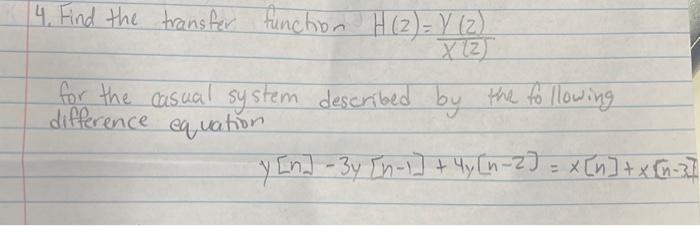 4. Find the transfer function H(z) = Y(z)
X(z)
for the casual system described by the following
difference equation
y[n] - 3y[n-1] + 4y[n-2] = x[n] + x[n-3]